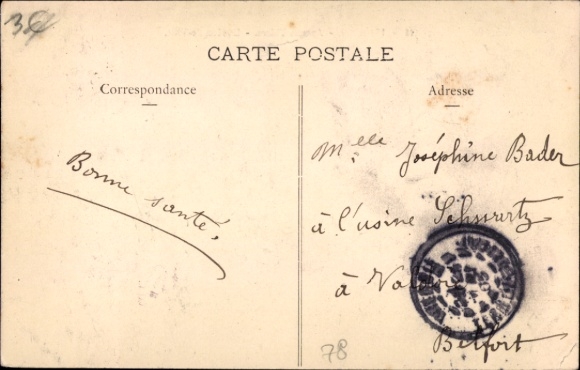 CARTE POSTALE
Correspondance
Adresse
Bonne santé.
Melle Joséphine Bader
à l'usine Schwartz
à Valdoie
Belfort
78